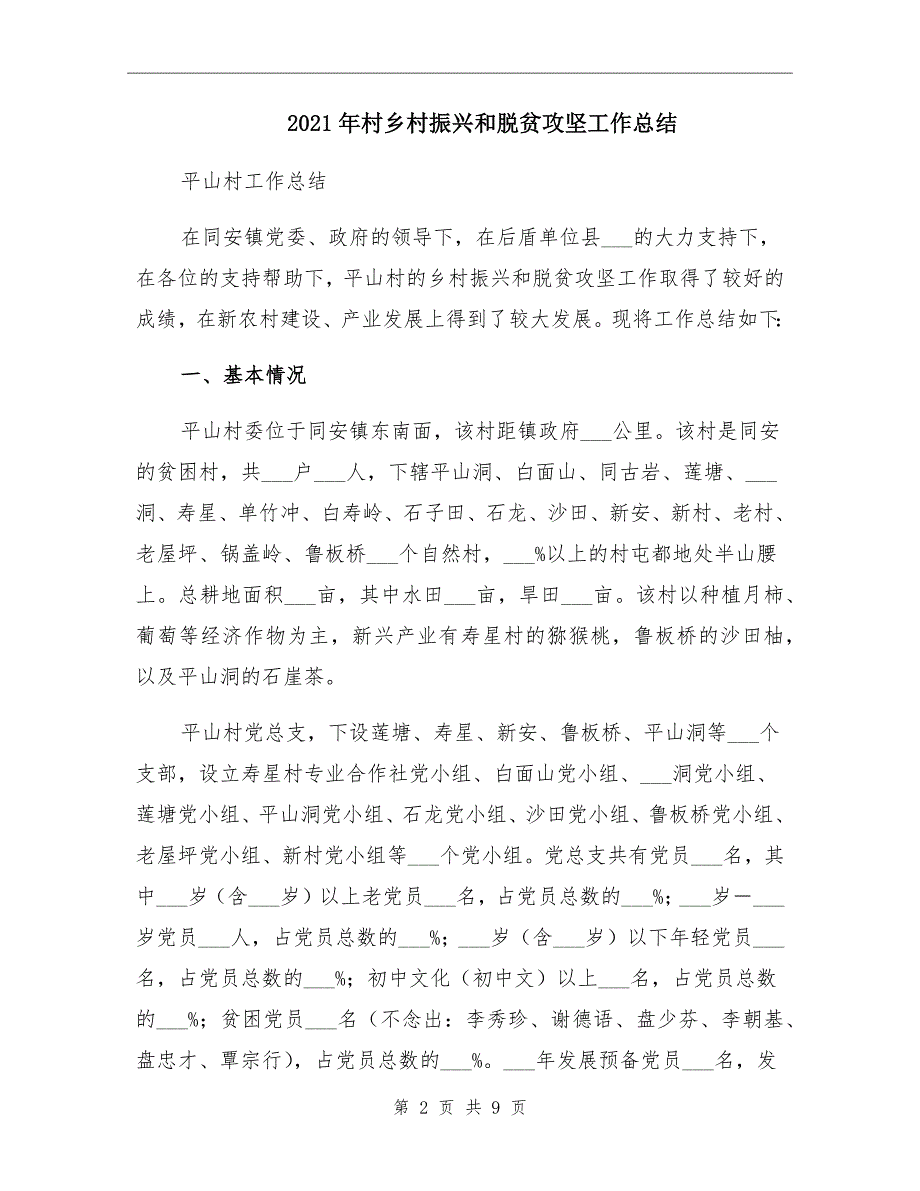 2021年村乡村振兴和脱贫攻坚工作总结
平山村工作总结
在同安镇党委、政府的领导下，在后盾单位县___的大力支持下，
在各位的支持帮助下，平山村的乡村振兴和脱贫攻坚工作取得了较好的
成绩，在新农村建设、产业发展上得到了较大发展。现将工作总结如下：
一、基本情况
平山村委位于同安镇东南面，该村距镇政府___公里。该村是同安
的贫困村，共___户___人，下辖平山洞、白面山、同古岩、莲塘、___
洞、寿星、单竹冲、白寿岭、石子田、石龙、沙田、新安、新村、老村、
老屋坪、锅盖岭、鲁板桥___个自然村，___%以上的村屯都地处半山腰
上。总耕地面积___亩，其中水田___亩，旱田___亩。该村以种植月柿、
葡萄等经济作物为主，新兴产业有寿星村的猕猴桃，鲁板桥的沙田柚，
以及平山洞的石崖茶。
平山村党总支，下设莲塘、寿星、新安、鲁板桥、平山洞等___个
支部，设立寿星村专业合作社党小组、白面山党小组、___洞党小组、
莲塘党小组、平山洞党小组、石龙党小组、沙田党小组、鲁板桥党小组、
老屋坪党小组、新村党小组等___个党小组。党总支共有党员___名，其
中___岁（含___岁）以上老党员___名，占党员总数的___%；___岁－___
岁党员___人，占党员总数的___%；___岁（含___岁）以下年轻党员___
名，占党员总数的___%；初中文化（初中文）以上___名，占党员总数
的___%；贫困党员___名（不念出：李秀珍、谢德语、盘少芬、李朝基、
盘忠才、覃宗行），占党员总数的___%。___年发展预备党员___名，发
第 2 页 共 9 页